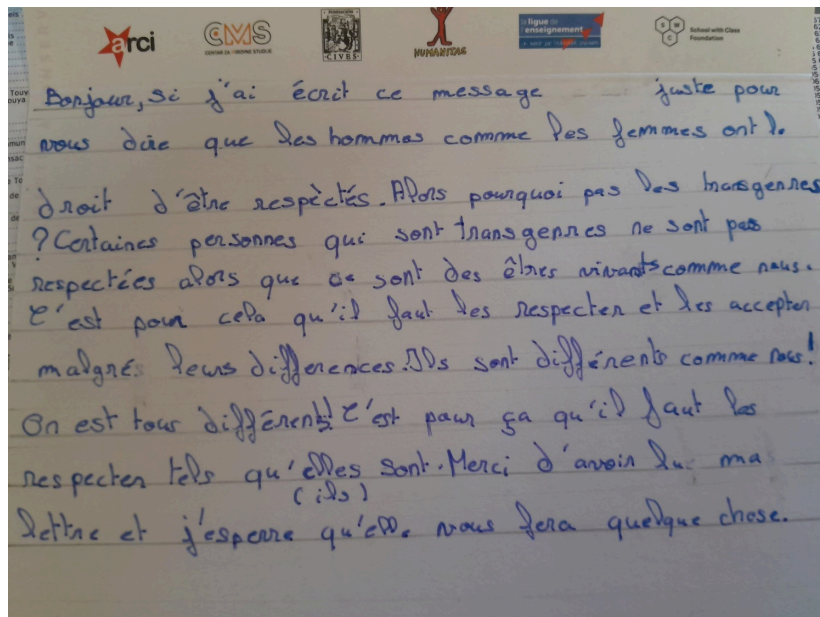 arci
CMS
CENTAR ZA MIROVNE STUDIJE
FUNDACIÓN
CIVES
HUMANITAS
la ligue de l'enseignement
S W C
School with Class Foundation
Bonjour, si j'ai écrit ce message juste pour
vous dire que les hommes comme les femmes ont le
droit d'être respèctés. Alors pourquoi pas les transgenres
? Certaines personnes qui sont transgenres ne sont pas
respectées alors que ce sont des êtres vivants comme nous.
C'est pour cela qu'il faut les respecter et les accepter
malgrés leurs differences. Ils sont différents comme nous!
On est tous différents! C'est pour ça qu'il faut les
respecter tels qu'elles sont. Merci d'avoir lu ma
(ils)
lettre et j'esperre qu'elle vous fera quelque chose.